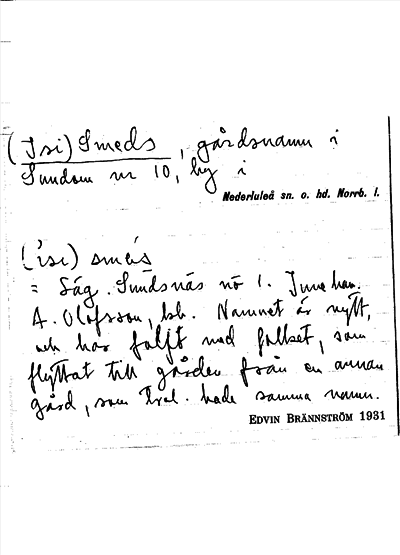 (Isi) Smeds, gårdsnamn i
Sundom nr 10, by i
Nederluleå sn. o. hd. Norrb. l.
(ìsi) smès
= Säg. Sundsnäs nö 1. Innehav.
A. Olofsson, bb. Namnet är nytt,
och har följt med folket, som
flyttat till gården från en annan
gård, som trol. hade samma namn.
EDVIN BRÄNNSTRÖM 1931